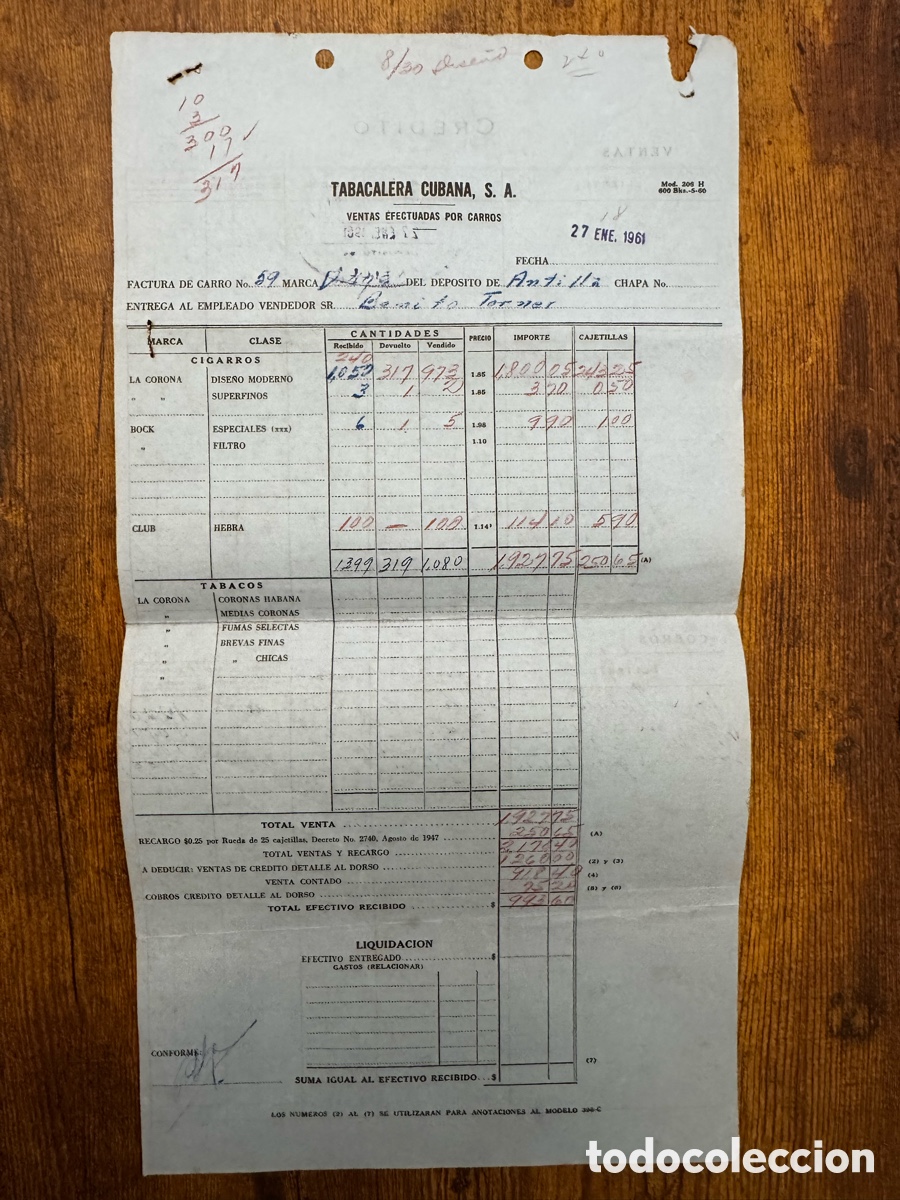 8/30 Diseño
240
10
3
300
17 ✓
317
TABACALERA CUBANA, S. A.
Mod. 206 H
600 Bks.-5-60
VENTAS EFECTUADAS POR CARROS
18
27 ENE. 1961
FECHA
FACTURA DE CARRO No. 59 MARCA DEL DEPOSITO DE Antilla CHAPA No.
ENTREGA AL EMPLEADO VENDEDOR SR. Benito Torner
MARCA CLASE CANTIDADES PRECIO IMPORTE CAJETILLAS
Recibido Devuelto Vendido
CIGARROS 240
LA CORONA DISEÑO MODERNO 1,050 317 973 1.85 1,800 05 243 25
" " SUPERFINOS 3 1 2 1.85 3 70 0 50
BOCK ESPECIALES (xxx) 6 1 5 1.98 9 90 1 00
" FILTRO 1.10
CLUB HEBRA 100 — 100 1.14¹ 114 10 5 90
1399 319 1,080 1,927 75 250 65 (A)
TABACOS
LA CORONA CORONAS HABANA
" MEDIAS CORONAS
" FUMAS SELECTAS
" BREVAS FINAS
" " CHICAS
"
TOTAL VENTA 1927 75
RECARGO $0.25 por Rueda de 25 cajetillas, Decreto No. 2740, Agosto de 1947 250 65 (A)
TOTAL VENTAS Y RECARGO 2178 40
A DEDUCIR: VENTAS DE CREDITO DETALLE AL DORSO 1260 00 (2) y (3)
VENTA CONTADO 918 40 (4)
COBROS CREDITO DETALLE AL DORSO 75 20 (5) y (6)
TOTAL EFECTIVO RECIBIDO $ 993 60
LIQUIDACION
EFECTIVO ENTREGADO $
GASTOS (RELACIONAR)
CONFORME:
(7)
SUMA IGUAL AL EFECTIVO RECIBIDO...$
LOS NUMEROS (2) AL (7) SE UTILIZARAN PARA ANOTACIONES AL MODELO 206-C
todocoleccion